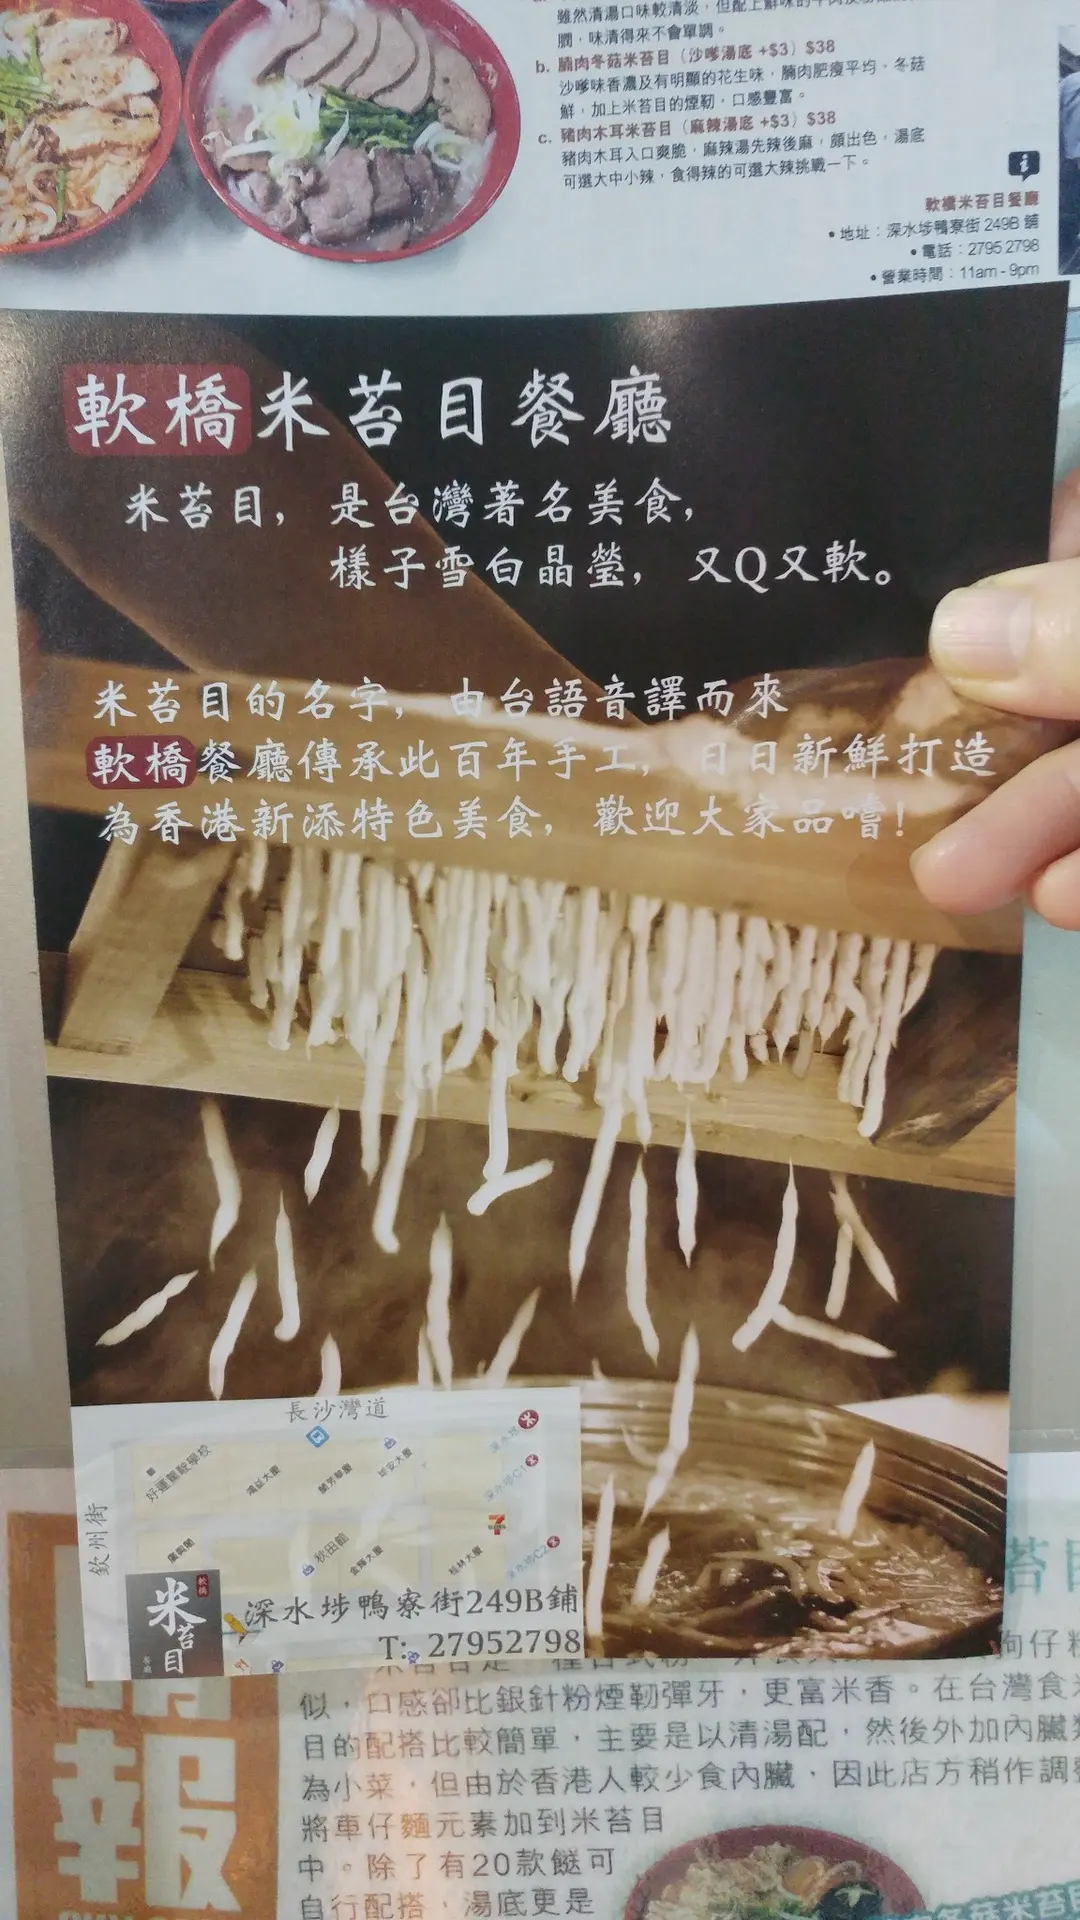 b. 腩肉冬菇米苔目（沙嗲湯底 +$3）$38
沙嗲味香濃及有明顯的花生味，腩肉肥瘦平均。冬菇
鮮，加上米苔目的煙韌，口感豐富。
c. 豬肉木耳米苔目（麻辣湯底 +$3）$38
豬肉木耳入口爽脆，麻辣湯先辣後麻，頗出色，湯底
可選大中小辣，食得辣的可選大辣挑戰一下。
軟橋米苔目餐廳
• 地址：深水埗鴨寮街 249B 舖
• 電話：2795 2798
• 營業時間：11am - 9pm
軟橋米苔目餐廳
米苔目，是台灣著名美食，
樣子雪白晶瑩，又Q又軟。
米苔目的名字，由台語音譯而來
軟橋餐廳傳承此百年手工，日日新鮮打造
為香港新添特色美食，歡迎大家品嚐！
長沙灣道
欽州街
好運駕駛學校
7
軟橋
米苔目
深水埗鴨寮街249B鋪
T: 27952798
報
似，口感卻比銀針粉煙韌彈牙，更富米香。在台灣食米
目的配搭比較簡單，主要是以清湯配，然後外加內臟類
為小菜，但由於香港人較少食內臟，因此店方稍作調整
將車仔麵元素加到米苔目
中。除了有20款餸可
自行配搭，湯底更是
冬菇米苔目